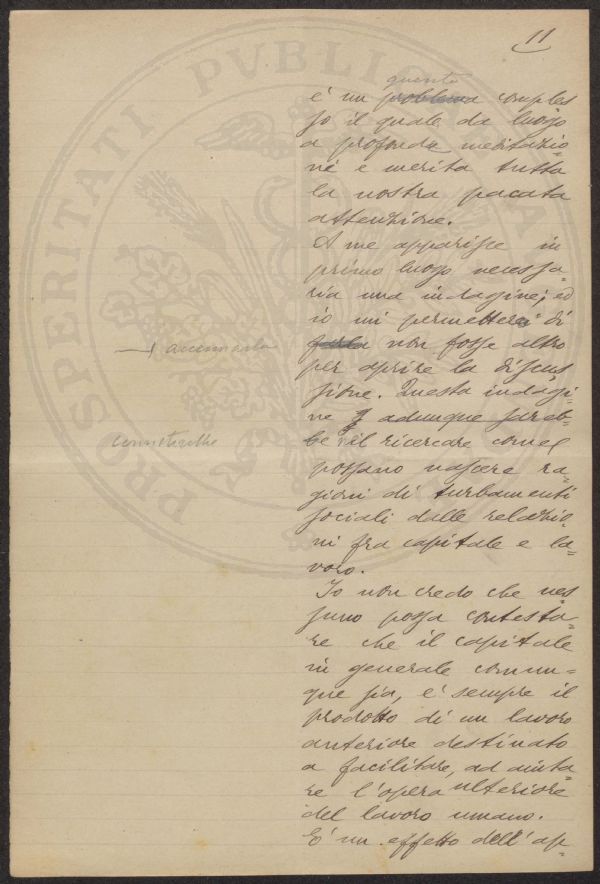 11
PROSPERITATI PVBLICA
quanto
è un problema comples
so il quale da luogo
a profonda meditazio=
ne e merita tutta
la nostra pacata
attenzione.
A me apparisce in
primo luogo necessa=
ria una indagine; ed
io mi permetterei di
accennarla
farla non fosse altro
per aprire la discus
sione. Questa indagi=
ne adunque sareb=
consisterebbe
be nel ricercare come
possano nascere ra=
gioni di turbamenti
sociali dalle relazio=
ni fra capitale e la=
voro.
Io non credo che nes
suno possa contesta=
re che il capitale
in generale comun=
que sia, è sempre il
prodotto di un lavoro
anteriore destinato
a facilitare, ad aiuta=
re l'opera ulteriore
del lavoro umano.
È un effetto dell'ap=